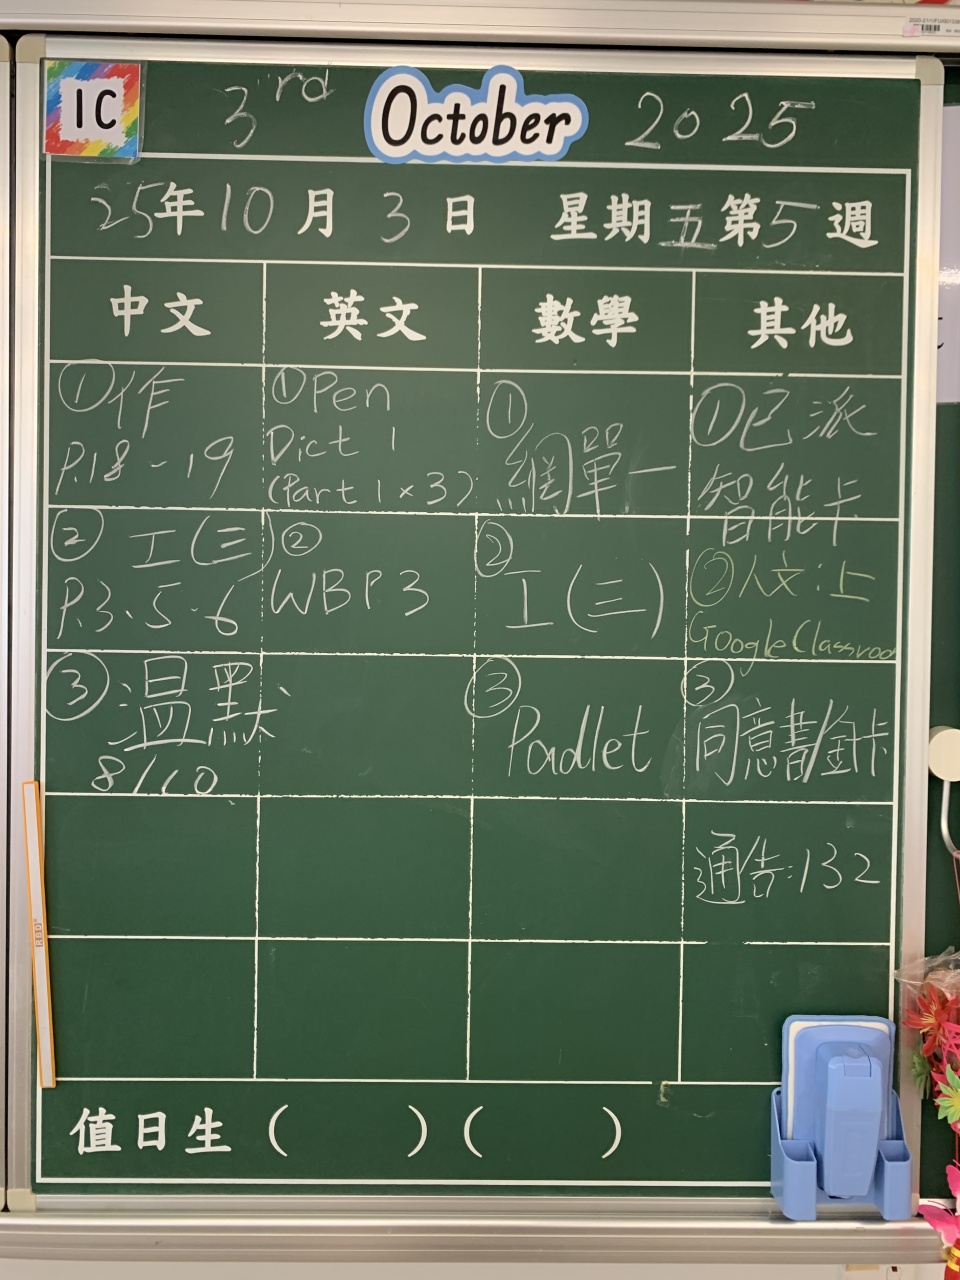 1C
3rd October 2025
25年10月3日 星期五第5週
中文 英文 數學 其他
①作
P.18-19
①Pen
Dict 1
(Part 1×3)
①
網單一
①已派
智能卡
② 工(三)
P.3、5-6
②
WB P3
②
工(三)
②人文:上
Google Classroo
③溫默
8/10
③
Padlet
③
同意書/金卡
通告:132
值日生 ( ) ( )
RBD